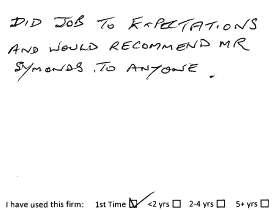 DID JOB TO EXPECTATIONS
AND WOULD RECOMMEND MR
SYMONDS. TO ANYONE.
I have used this firm: 1st Time ☑ <2 yrs ☐ 2-4 yrs ☐ 5+ yrs ☐